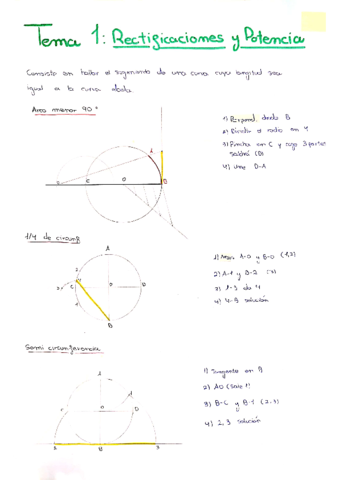 Tema 1: Rectificaciones y Potencia
Consiste en hallar el segmento de una curva cuya longitud sea
igual a la curva dada.
Arco menor 90°
1) Perpend. desde B
2) Dividir el radio en 4
3) Pincha en C y coge 3 partes
saldrá (D)
4) Unir D-A
A
C
O
B
1/4 de circunf
1) A-O y B-O (1,2)
2) A-1 y B-2
3) 1-3 da 4
4) 4-B solución
A
C
O
D
B
Semi circunferencia
1) Tangente en B
2) AO (sale 1)
3) B-C y B-1 (2,3)
4) 2,3 solución
A
O
D
B